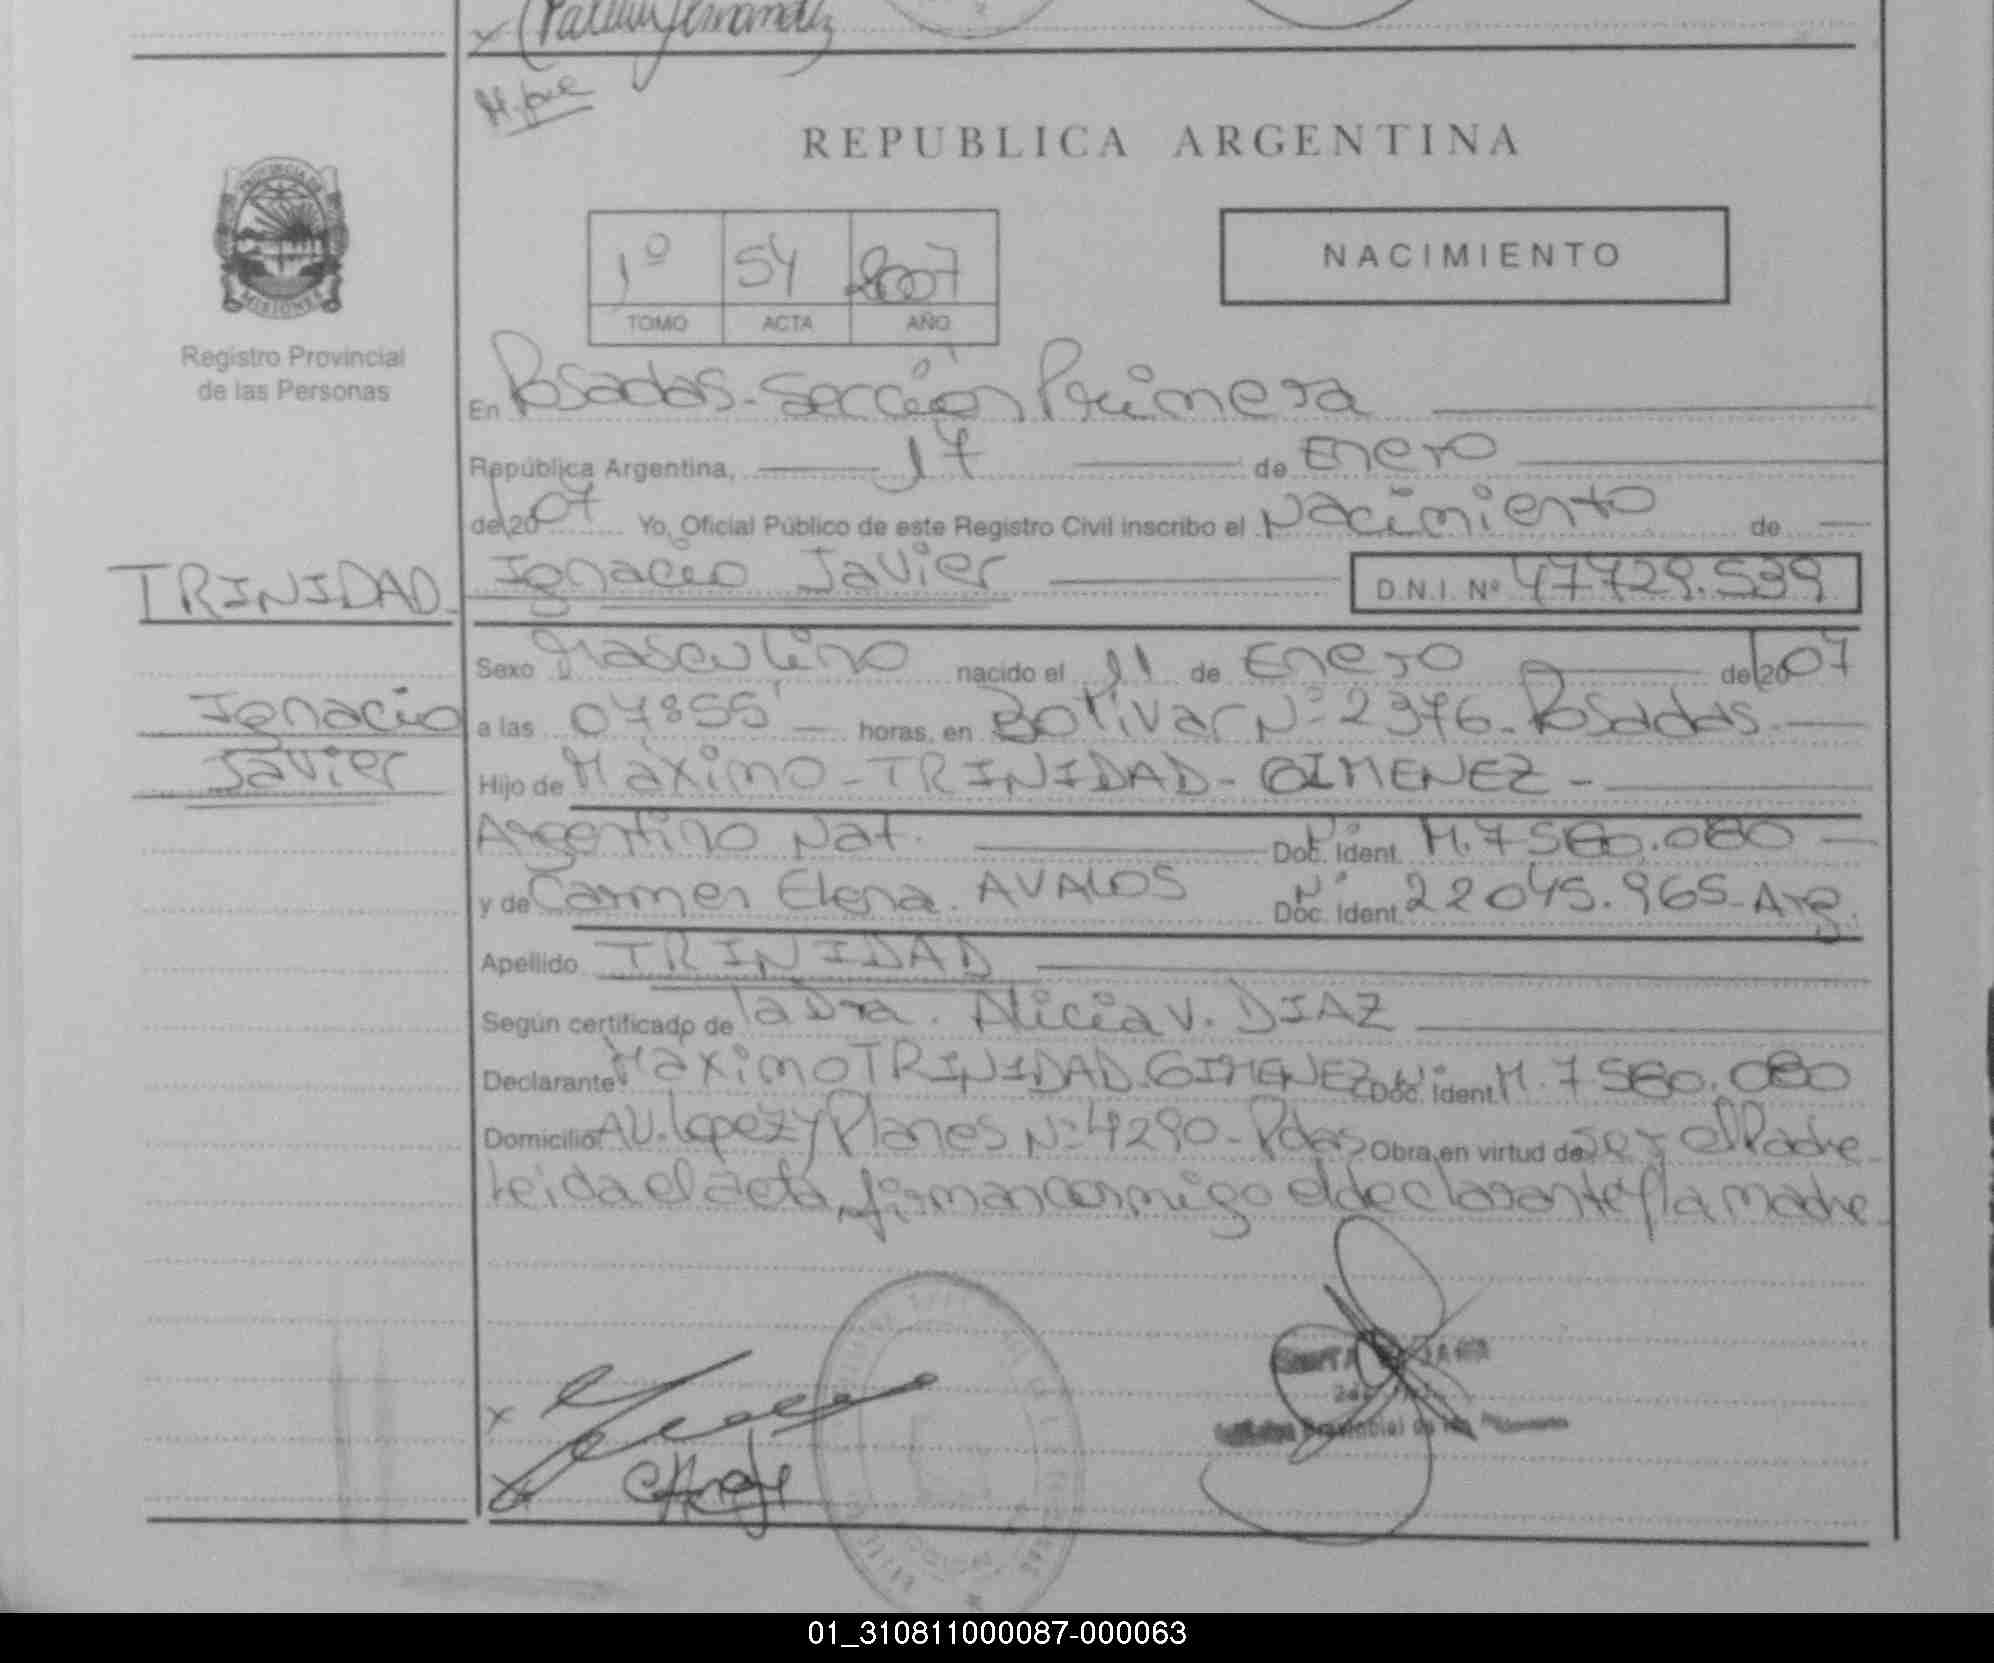 REPUBLICA ARGENTINA
PROVINCIA DE
MISIONES
Registro Provincial
de las Personas
1º 54 2007
TOMO ACTA AÑO
NACIMIENTO
En Posadas - Sección Primera
República Argentina, 17 de Enero
de 2007 Yo, Oficial Público de este Registro Civil inscribo el Nacimiento de
TRINIDAD Ignacio Javier D.N.I. Nº 47729.539
Sexo Masculino nacido el 11 de Enero de 2007
Ignacio
Javier
a las 07:55' horas, en Bolivar Nº 2376 - Posadas
Hijo de Maximo - TRINIDAD - GIMENEZ -
Argentino Nat. Doc. Ident. Nº M.7560.080
y de Carmen Elena AVALOS Doc. Ident. Nº 22045.965 - Arg.
Apellido TRINIDAD
Según certificado de la Dra. Alicia V. DIAZ
Declarante Maximo TRINIDAD - GIMENEZ Doc. Ident. Nº M.7560.080
Domicilio AV. Lopez y Planes Nº 4290 - Pdas Obra en virtud de ser el Padre
Leida el acta, firman conmigo el declarante y la madre
01_310811000087-000063